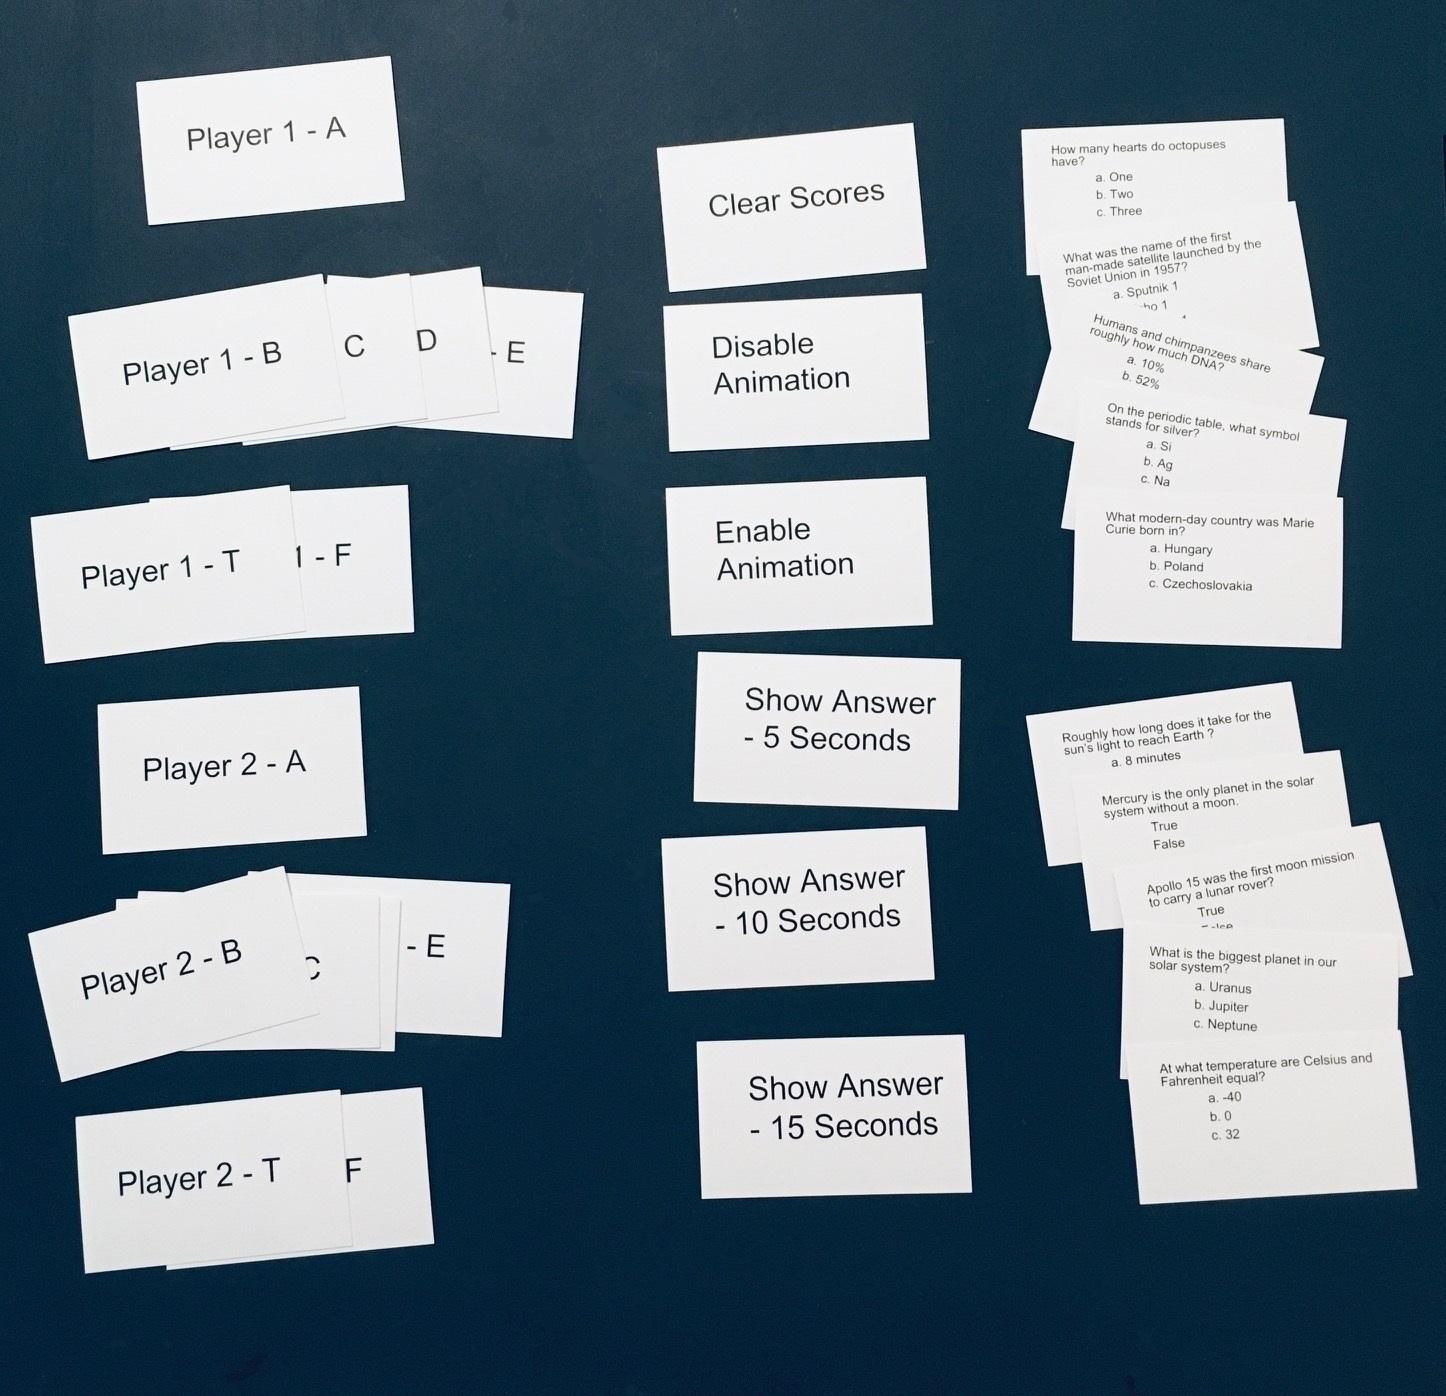 Player 1 - A
Player 1 - B
C
D
- E
Player 1 - T
1 - F
Player 2 - A
Player 2 - B
- E
Player 2 - T
F
Clear Scores
Disable
Animation
Enable
Animation
Show Answer
- 5 Seconds
Show Answer
- 10 Seconds
Show Answer
- 15 Seconds
How many hearts do octopuses
have?
a. One
b. Two
c. Three
What was the name of the first
man-made satellite launched by the
Soviet Union in 1957?
a. Sputnik 1
Humans and chimpanzees share
roughly how much DNA?
a. 10%
b. 52%
On the periodic table, what symbol
stands for silver?
a. Si
b. Ag
c. Na
What modern-day country was Marie
Curie born in?
a. Hungary
b. Poland
c. Czechoslovakia
Roughly how long does it take for the
sun's light to reach Earth ?
a. 8 minutes
Mercury is the only planet in the solar
system without a moon.
True
False
Apollo 15 was the first moon mission
to carry a lunar rover?
True
What is the biggest planet in our
solar system?
a. Uranus
b. Jupiter
c. Neptune
At what temperature are Celsius and
Fahrenheit equal?
a. -40
b. 0
c. 32